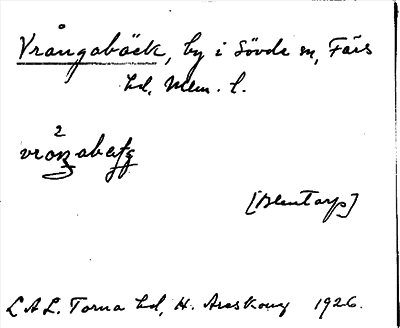 Vrångabäck, by i Sövde sn, Färs
hd, Mlm. l.
2
[Blentarp]
LAL. Torna hd, H. Areskoug 1926.